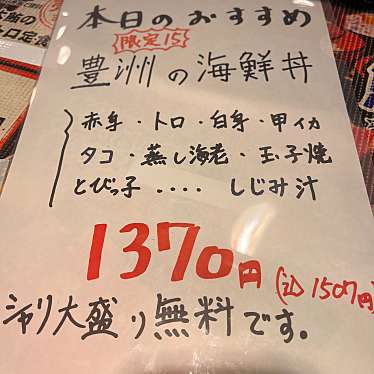 本日のおすすめ
限定15
豊洲の海鮮丼
赤身・トロ・白身・甲イカ
タコ・蒸し海老・玉子焼
とびっ子‥‥しじみ汁
1370円(込1507円)
シャリ大盛り無料です。